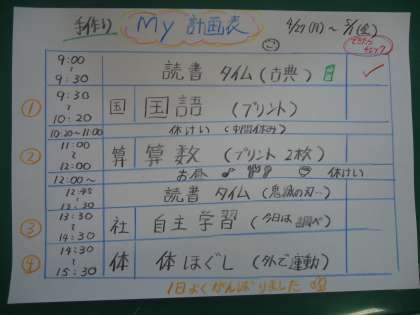 手作り My 計画表 4/27(月)〜5/1(金)
9:00〜9:30 読書タイム(古典)
① 9:30〜10:20 国 国語 (プリント)
10:20〜11:00 休けい (中間休み)
② 11:00〜12:00 算 算数 (プリント 2枚)
12:00〜 お昼 休けい
12:45〜13:30 読書タイム (鬼滅の刃…)
③ 13:30〜14:30 社 自主学習 (今日は調べ)
④ 14:30〜15:30 体 体ほぐし (外で運動)
1日よくがんばりました